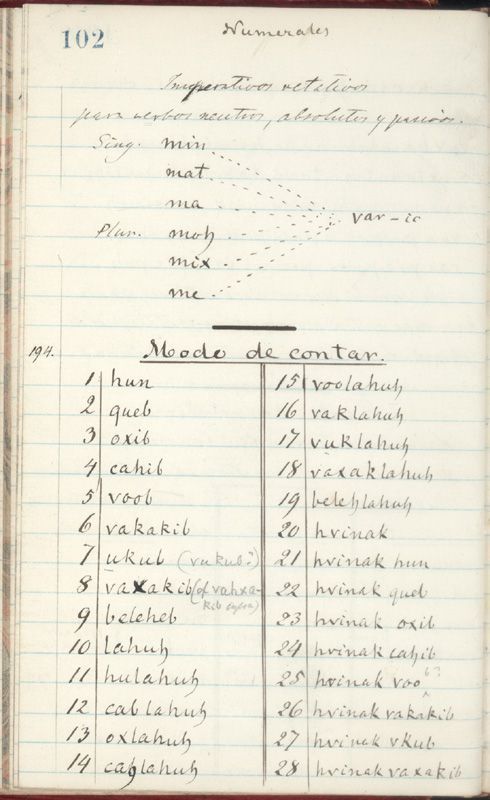 102
Numerales
Imperativos vetativos
para verbos neutros, absolutos y pasivos.
Sing. min
mat
ma
var-ic
Plur. moh
mix
me
194. Modo de contar.
1 hun
2 queb
3 oxib
4 cahib
5 voob
6 vakakib
7 ukub (vukub?)
8 vaxakib (cf vahxa-
kib supra)
9 beleheb
10 lahuh
11 hulahuh
12 cablahuh
13 oxlahuh
14 cahlahuh
15 voolahuh
16 vaklahuh
17 vuklahuh
18 vaxaklahuh
19 belehlahuh
20 hvinak
21 hvinak hun
22 hvinak queb
23 hvinak oxib
24 hvinak cahib
25 hvinak voo b?
26 hvinak vakakib
27 hvinak vkub
28 hvinak vaxakib